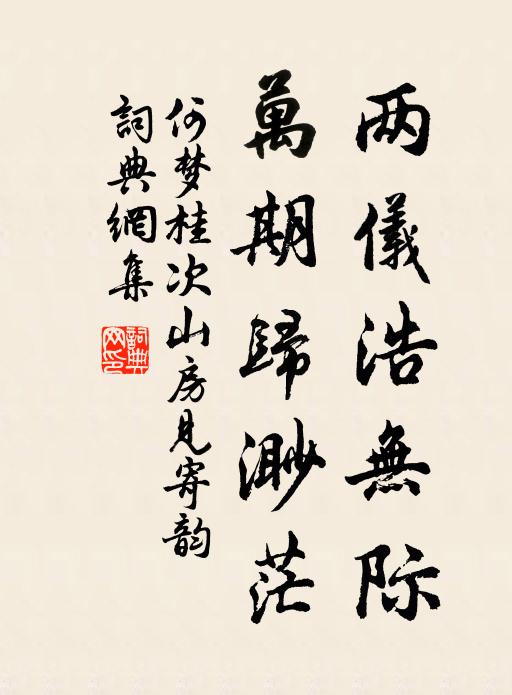 两儀浩無际
萬期歸渺茫
何梦桂次山房見寄韵
詞典網集
詞典
网印